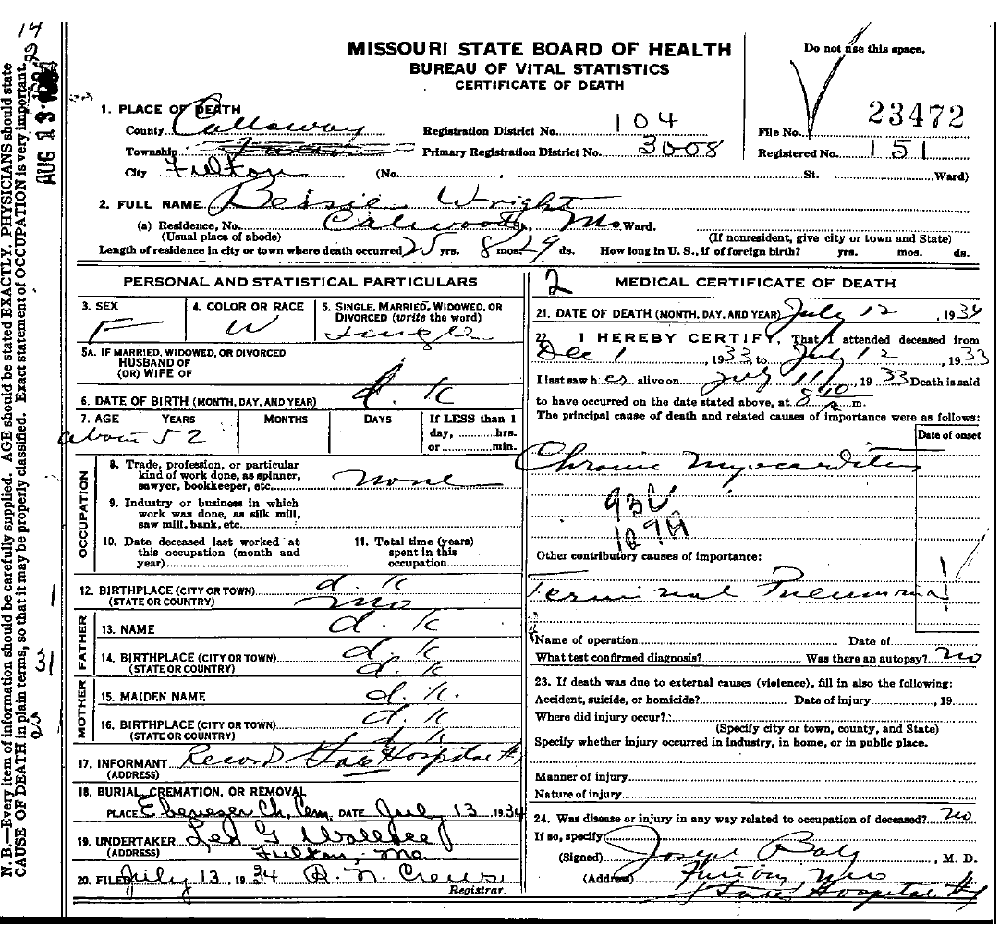 14
MISSOURI STATE BOARD OF HEALTH
BUREAU OF VITAL STATISTICS
CERTIFICATE OF DEATH
Do not use this space.
AUG 13
1. PLACE OF DEATH
County Callaway Registration District No. 104 File No. 23472
Township Primary Registration District No. 3008 Registered No. 151
City Fulton (No. St. Ward)
2. FULL NAME Bessie Wright
(a) Residence, No. Calwood, Mo Ward.
(Usual place of abode) (If nonresident, give city or town and State)
Length of residence in city or town where death occurred 25 yrs. 8 mos. 29 ds. How long in U. S., if of foreign birth? yrs. mos. ds.
PERSONAL AND STATISTICAL PARTICULARS
3. SEX
F
4. COLOR OR RACE
W
5. SINGLE, MARRIED, WIDOWED, OR DIVORCED (write the word)
Single
5A. IF MARRIED, WIDOWED, OR DIVORCED
HUSBAND OF
(OR) WIFE OF
6. DATE OF BIRTH (MONTH, DAY, AND YEAR) d. k
7. AGE YEARS MONTHS DAYS If LESS than 1
day, hrs.
or min.
about 52
OCCUPATION
8. Trade, profession, or particular
kind of work done, as spinner,
sawyer, bookkeeper, etc. none
9. Industry or business in which
work was done, as silk mill,
saw mill, bank, etc.
10. Date deceased last worked at
this occupation (month and
year)
11. Total time (years)
spent in this
occupation
12. BIRTHPLACE (CITY OR TOWN) d. k
(STATE OR COUNTRY) mo
FATHER
13. NAME d. k
14. BIRTHPLACE (CITY OR TOWN) d. k
(STATE OR COUNTRY) d. k
MOTHER
15. MAIDEN NAME d. k.
16. BIRTHPLACE (CITY OR TOWN) d. k
(STATE OR COUNTRY) d. k
17. INFORMANT Record State Hospital #1
(ADDRESS)
18. BURIAL, CREMATION, OR REMOVAL
PLACE Ebenezer Ch. Cem. DATE July 13, 1934
19. UNDERTAKER Leo G
(ADDRESS) Fulton, Mo
20. FILED July 13, 1934 R. N. Crews
Registrar.
2 MEDICAL CERTIFICATE OF DEATH
21. DATE OF DEATH (MONTH, DAY, AND YEAR) July 12, 1934
22. I HEREBY CERTIFY, That I attended deceased from
Dec 1, 1933 to July 12, 1933
I last saw her alive on July 11, 1933 Death is said
to have occurred on the date stated above, at m.
The principal cause of death and related causes of importance were as follows:
Date of onset
Chronic Myocarditis
Other contributory causes of importance:
Terminal Pneumonia
Name of operation Date of
What test confirmed diagnosis? Was there an autopsy? no
23. If death was due to external causes (violence), fill in also the following:
Accident, suicide, or homicide? Date of injury , 19
Where did injury occur?
(Specify city or town, county, and State)
Specify whether injury occurred in industry, in home, or in public place.
Manner of injury
Nature of injury
24. Was disease or injury in any way related to occupation of deceased? no
If so, specify
(Signed) Joseph , M. D.
(Address) Fulton Mo
State Hospital #1
N. B.—Every item of information should be carefully supplied. AGE should be stated EXACTLY. PHYSICIANS should state
CAUSE OF DEATH in plain terms, so that it may be properly classified. Exact statement of OCCUPATION is very important.
31